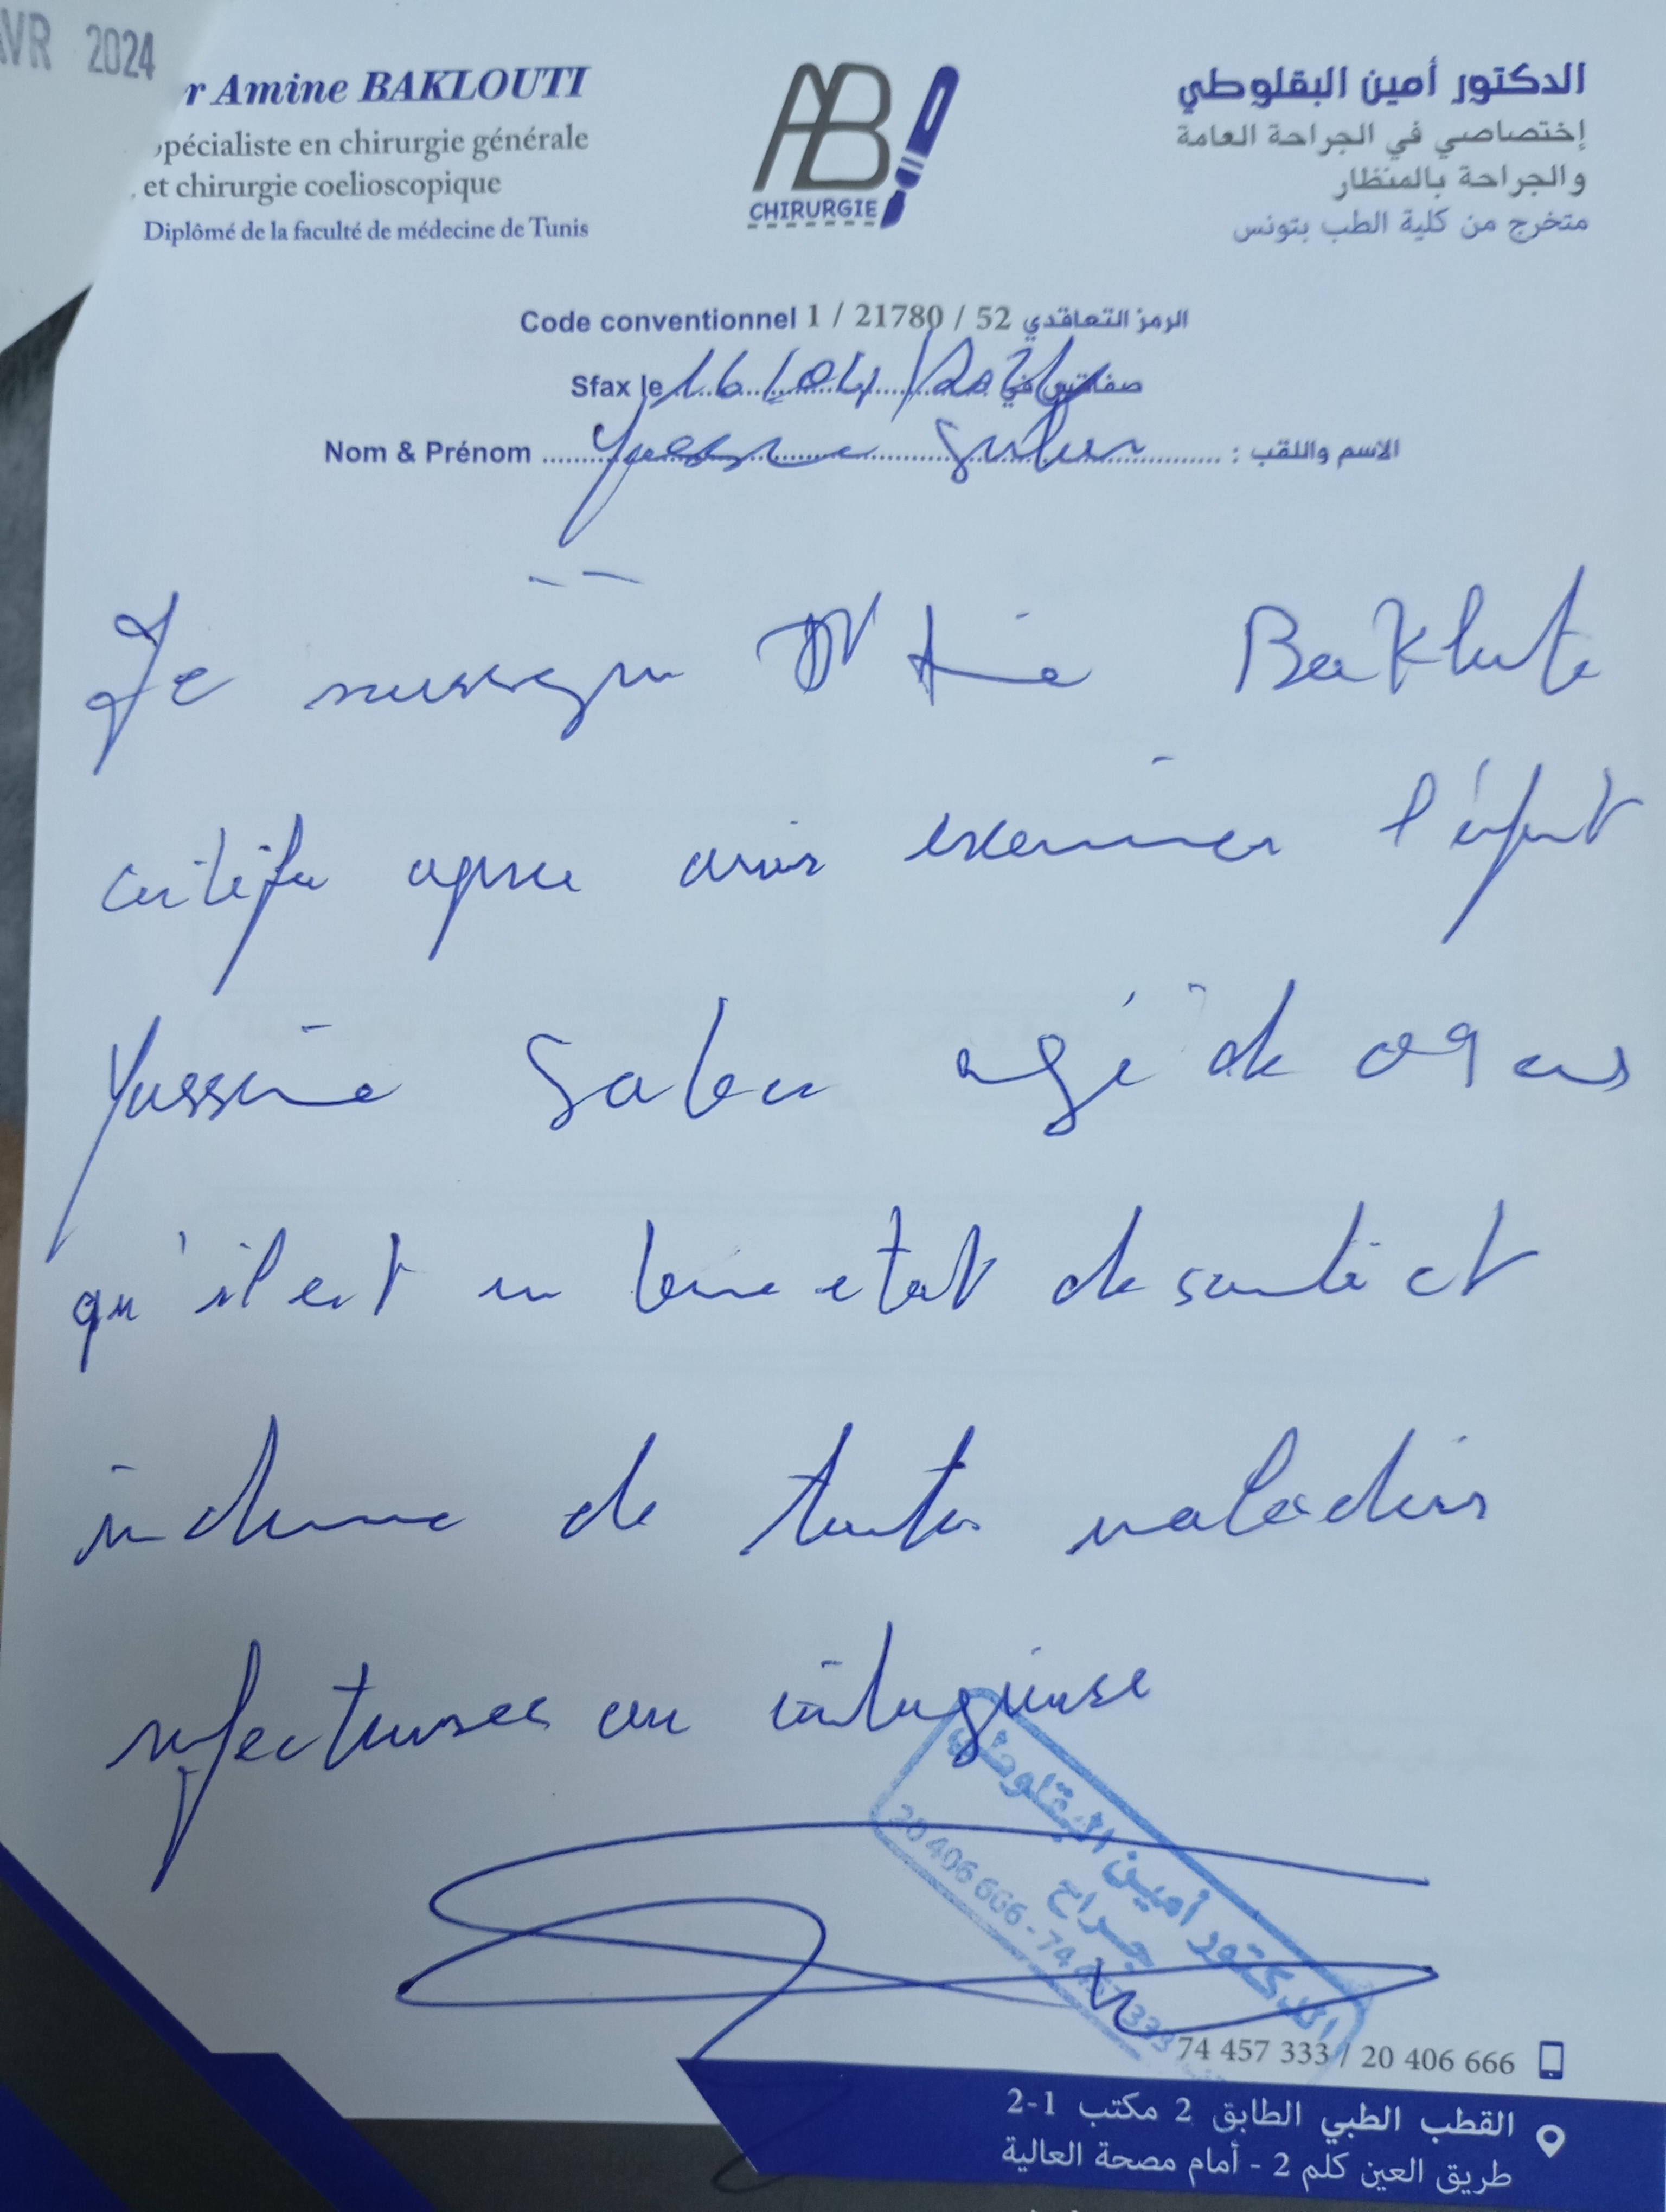 AVR 2024
r Amine BAKLOUTI
pécialiste en chirurgie générale
et chirurgie coelioscopique
Diplômé de la faculté de médecine de Tunis
AB
CHIRURGIE
الدكتور أمين البقلوطي
إختصاصي في الجراحة العامة
والجراحة بالمنظار
متخرج من كلية الطب بتونس
Code conventionnel 1 / 21780 / 52 الرمز التعاقدي
Sfax le 16/04/2024 صفاقس في
Nom & Prénom Yassine الاسم واللقب :
Je soussigné Dr Amine Baklouti
certifie après avoir examiner l'enfant
Yassine agé de 09 ans
qu'il est en bonne etat de santé et
indemne de toutes maladies
infectieuses ou contagieuse
الدكتور أمين البقلوطي
جراح
20 406 666 - 74 457 333
74 457 333 / 20 406 666
القطب الطبي الطابق 2 مكتب 1-2
طريق العين كلم 2 - أمام مصحة العالية